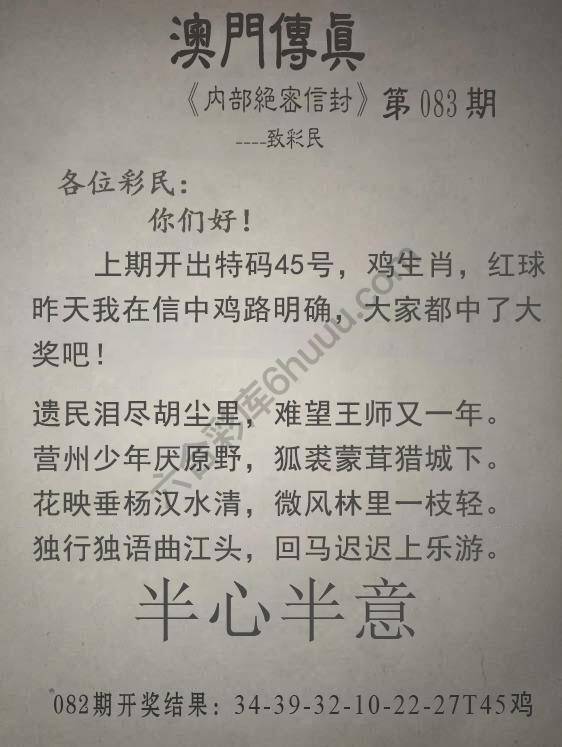 澳門傳眞
《内部絕密信封》第083期
----致彩民
各位彩民：
你们好！
上期开出特码45号，鸡生肖，红球
昨天我在信中鸡路明确，大家都中了大
奖吧！
遗民泪尽胡尘里，难望王师又一年。
营州少年厌原野，狐裘蒙茸猎城下。
花映垂杨汉水清，微风林里一枝轻。
独行独语曲江头，回马迟迟上乐游。
半心半意
082期开奖结果：34-39-32-10-22-27T45鸡
六合彩库6huuu.com